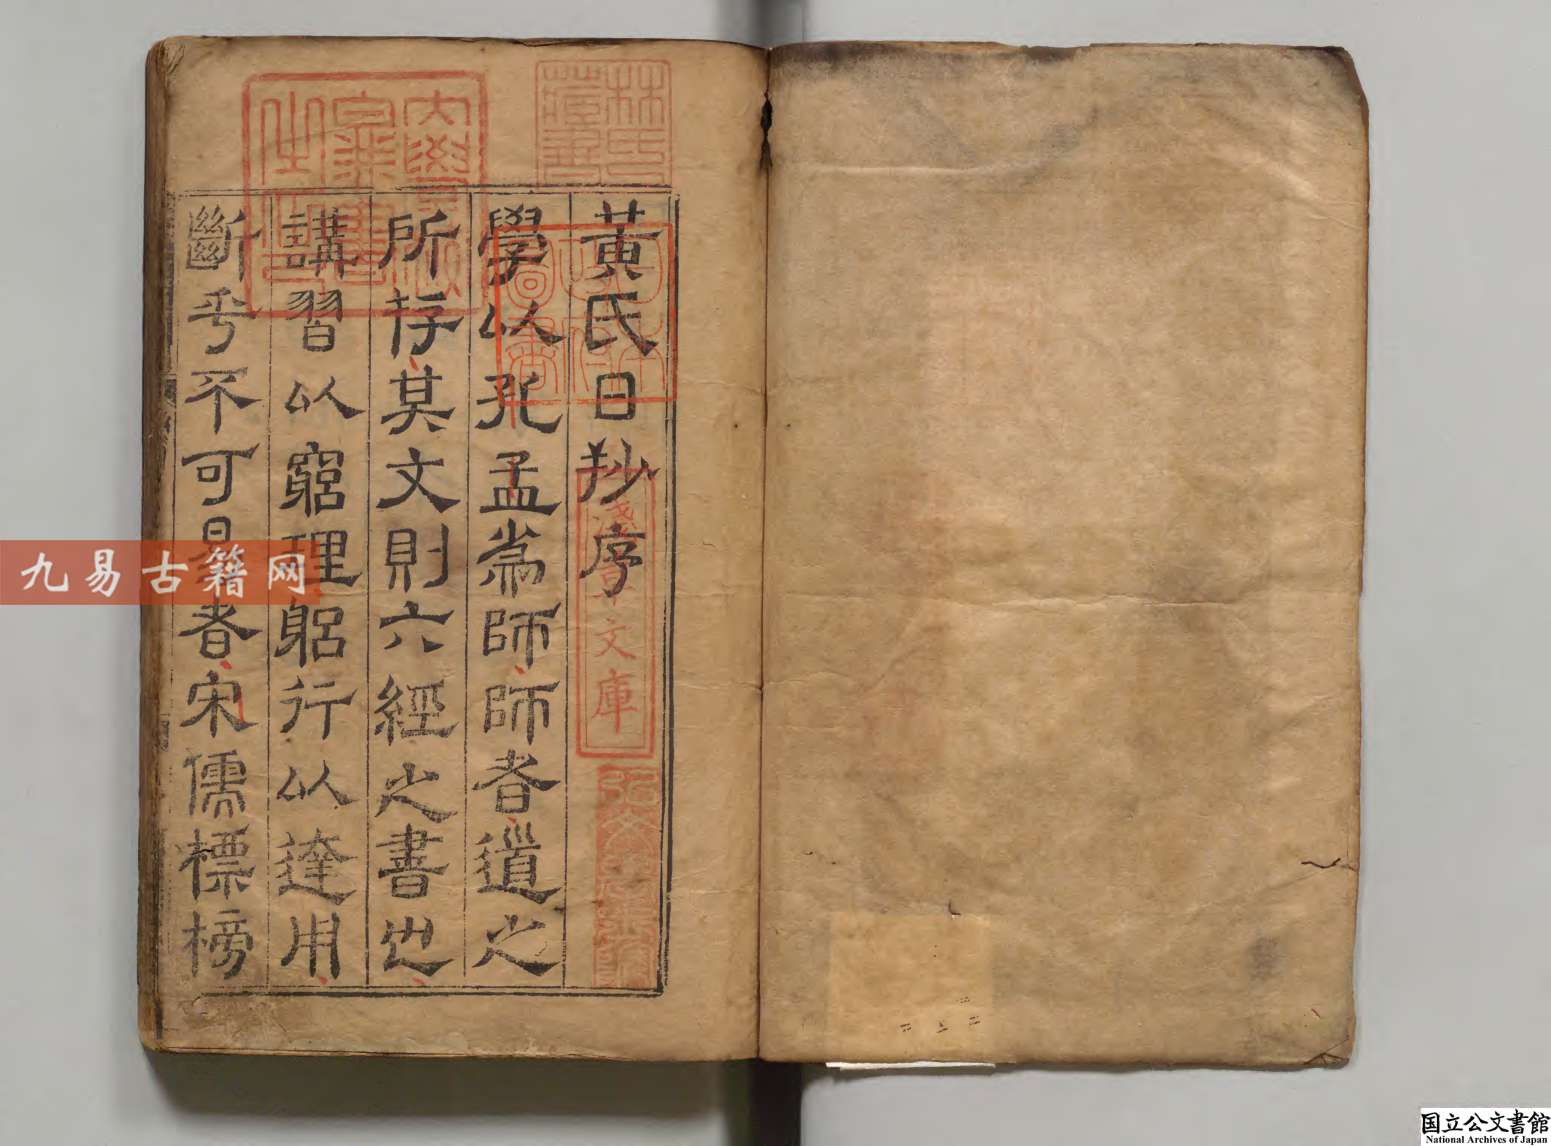 黃氏日抄序
學以孔孟爲師師者道之
所存其文則六經之書也
講習以窮理躬行以達用
斷乎不可易者宋儒標榜
林氏藏書
淺草文庫
九易古籍网
国立公文書館
National Archives of Japan